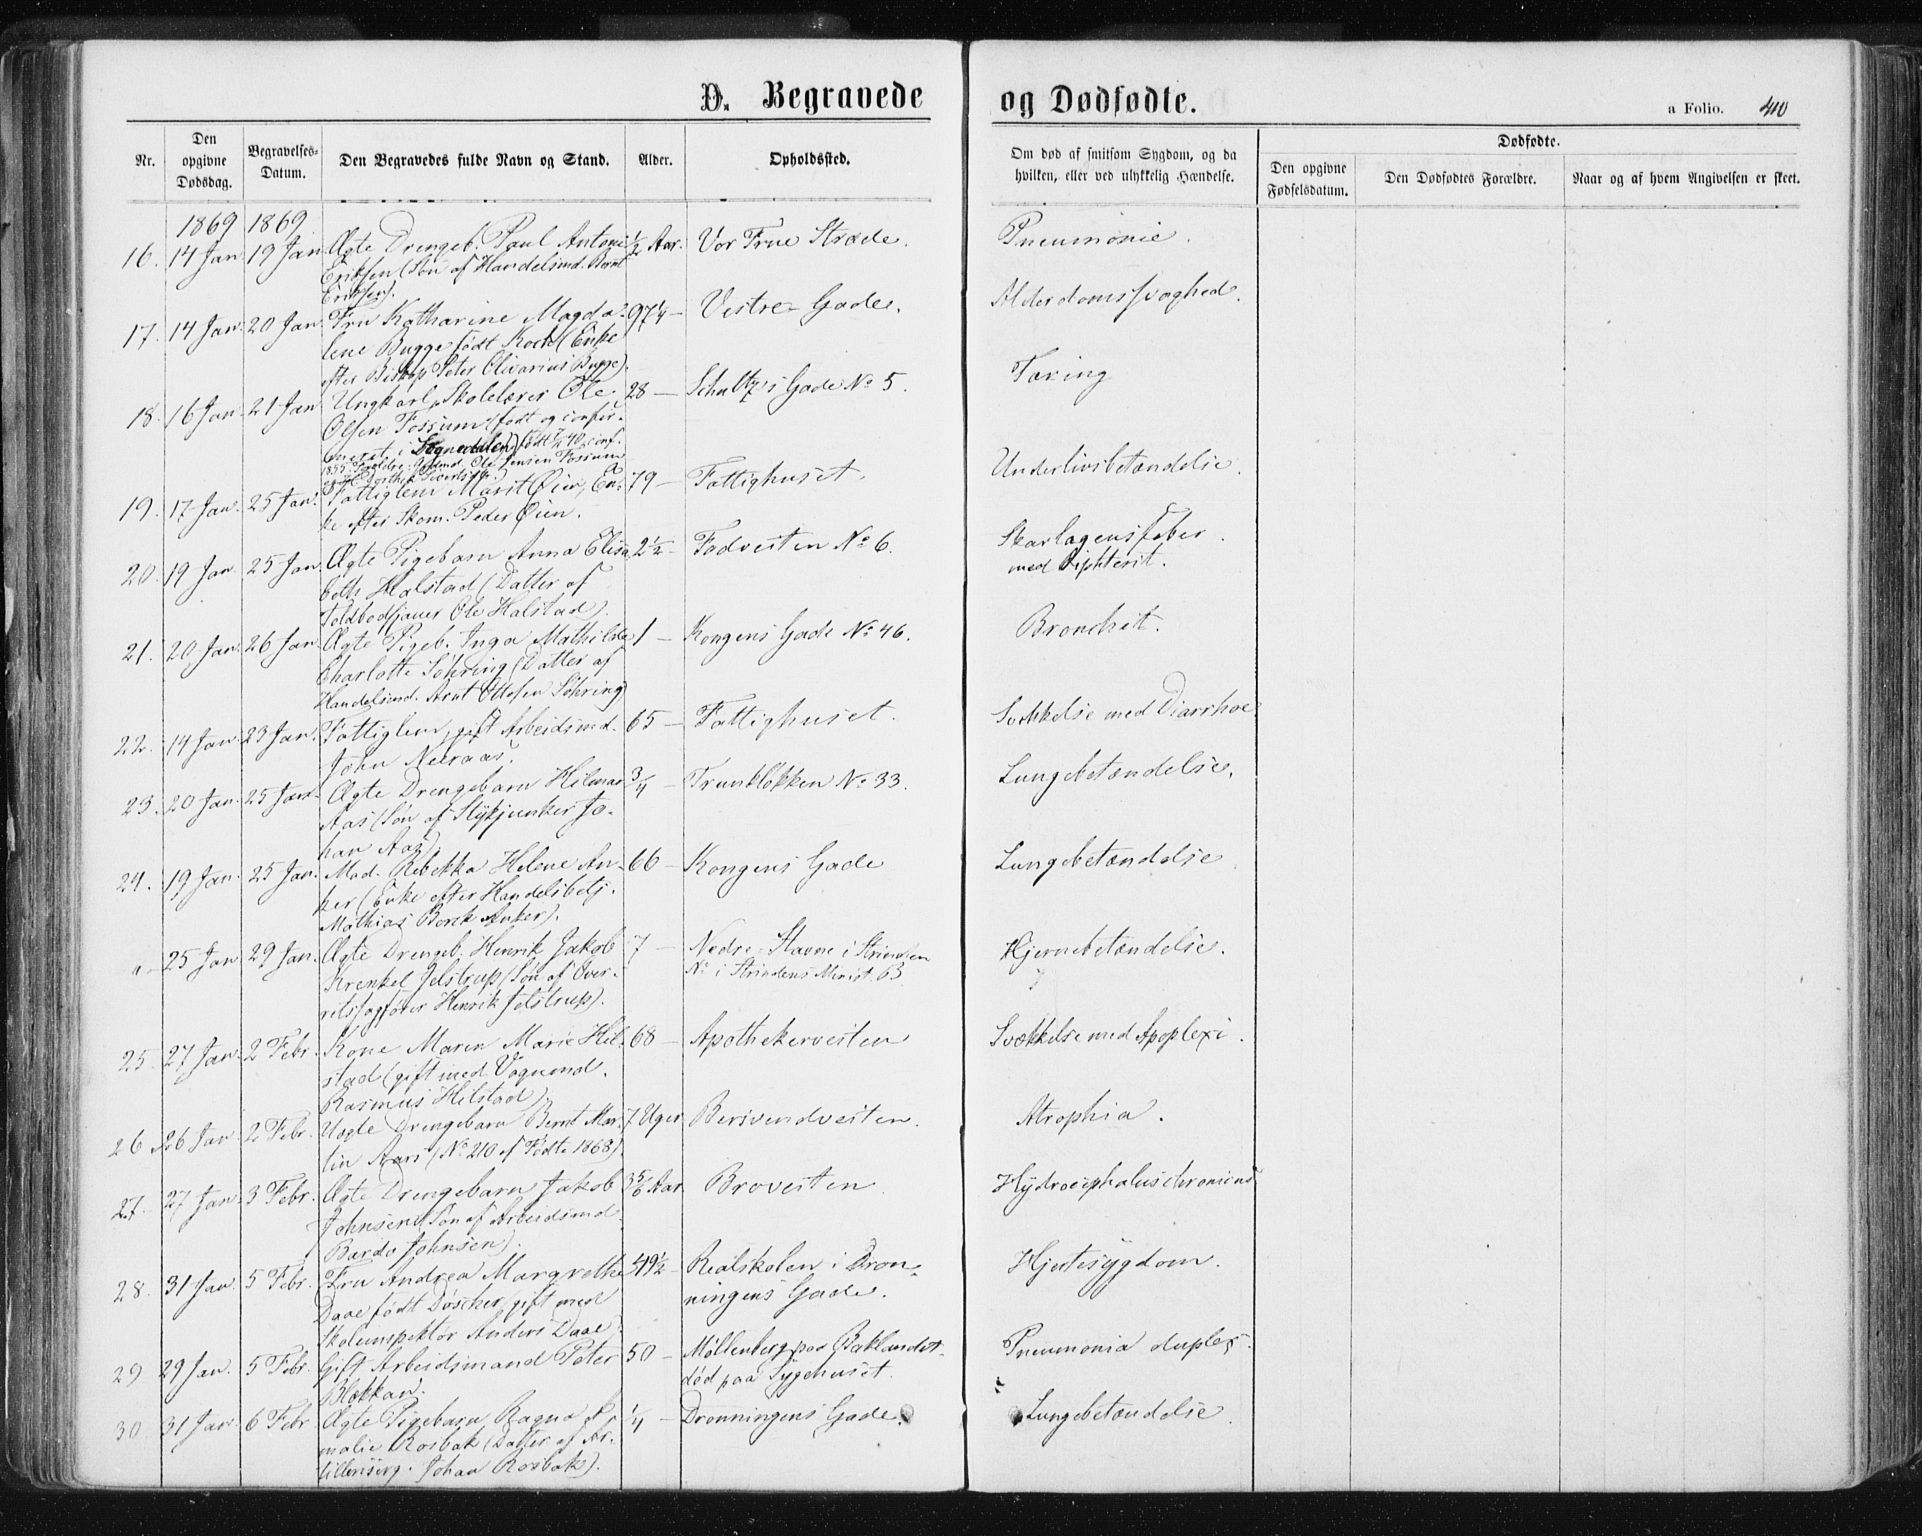 D. Begravede og Dødfødte.
a Folio. 410
Nr.
Den opgivne Dødsdag.
Begravelses-Datum.
Den Begravedes fulde Navn og Stand.
Alder.
Opholdssted.
Om død af smitsom Sygdom, og da hvilken, eller ved ulykkelig Hændelse.
Dødfødte.
Den opgivne Fødselsdatum.
Den Dødfødtes Forældre.
Naar og af hvem Angivelsen er skeet.
1869 1869
16. 14 Jan 19 Jan Ægte Drengeb. Paul Antoni ½ Aar. Vor Frue Stræde. Pneumonie.
Eriksen (Søn af Handelsmd. Bernt
Eriksen).
17. 14 Jan. 20 Jan. Fru Katharine Magda- 97¼ — Vestre Gade. Alderdomssvaghed.
lene Bugge født Koch (Enke
efter Biskop Peter Olivarius Bugge).
18. 16 Jan. 21 Jan Ungkarl, Skolelærer Ole 28 — Schultz's Gade No 5. Tæring
Olsen Fossum (født og confir-
meret i Soknedalen) født 7/1 40, conf.
1855 Forældre: Ole Jensen Fossum
19. 17 Jan. 25 Jan. Fattiglem Marit Øien, En- 79 — Fattighuset. Underlivsbetændelse.
ke efter Skom. Peder Øien.
20. 19 Jan. 25 Jan Ægte Pigebarn Anna Elisa 2½ — Fadvesten No 6. Skarlagensfeber.
beth Halstad (Datter af med Diphterit.
Toldbodsjauer Ole Halstad).
21. 20 Jan. 26 Jan Ægte Pigeb. Inga Mathilde 1 — Kongens Gade No 46. Bronchit.
Charlotte Söhring (Datter af
Handelsmd. Arnt Ottesen Söhring)
22. 14 Jan. 23 Jan. Fattiglem, gift Arbeidsmd. 65 — Fattighuset. Svækkelse med Diarrhoe
John Neeraas.
23. 20 Jan. 25 Jan. Ægte Drengebarn Hilmar ¾ — Trunkløkken No 33. Lungebetændelse.
Aas (Søn af Stykjunker Jo-
han Aas)
24. 19 Jan. 25 Jan. Mad. Rebekka Helene An- 66 — Kongens Gade Lungebetændelse
ker (Enke efter Handelsbetj.
Mathias Borck Anker).
" 25 Jan 29 Jan. Ægte Drengeb. Henrik Jakob 7 — Nedre-Stavne i Strinden Hjernebetændelse.
Krenkel Jelstrup (Søn af Over- No i Strindens Minist. B
retssagfører Henrik Jelstrup).
25. 27 Jan. 2 Febr. Kone Maren Marie Hil- 68 — Apothekervesten Svækkelse med Apoplexi.
stad (gift med Vognmd.
Rasmus Hilstad)
26. 26 Jan 2 Febr. Uægte Drengebarn Bernt Mar- 7 Uger Bersvendvesten. Atrophia.
tin Aars (No 210 af Fødte 1868)
27. 27 Jan 3 Febr. Ægte Drengebarn Jakob 3 5/6 Aar Brovesten Hydrocephalus chronicus
Johnsen (Søn af Arbeidsmd.
Bardo Johnsen).
28. 31 Jan 5 Febr. Fru Andrea Margrethe 49½ — Realskolen i Dron- Hjertesygdom.
Daae født Döscher, gift med ningens Gade.
Skoleinspektør Anders Daae
29 29 Jan. 5 Febr. Gift Arbeidsmand Peter 50 — Møllenberg paa Baklandet Pneumonia duplex.
Blekkan. død paa Sygehuset.
30 31 Jan. 6 Febr Ægte Pigebarn Ragna A- ¼ — Dronningens Gade. Lungebetændelse.
malie Rosbak (Datter af Ar-
tilleriserg. Johan Rosbak).